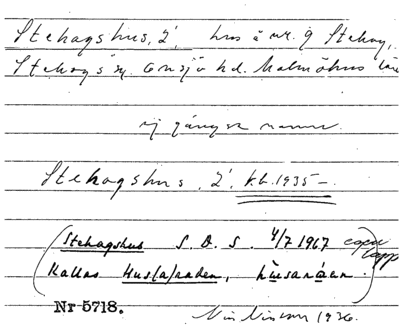 Stehagshus, 2', hus å nr. 9 Stehag,
Stehags sn. Onsjö hd. Malmöhus län
ej gängse namn.
Stehagshus, 2', kb. 1935–.
Stehagshus S. O. S. 4/7 1967 egen lapp
Kallas
Nr 5718.
1936.